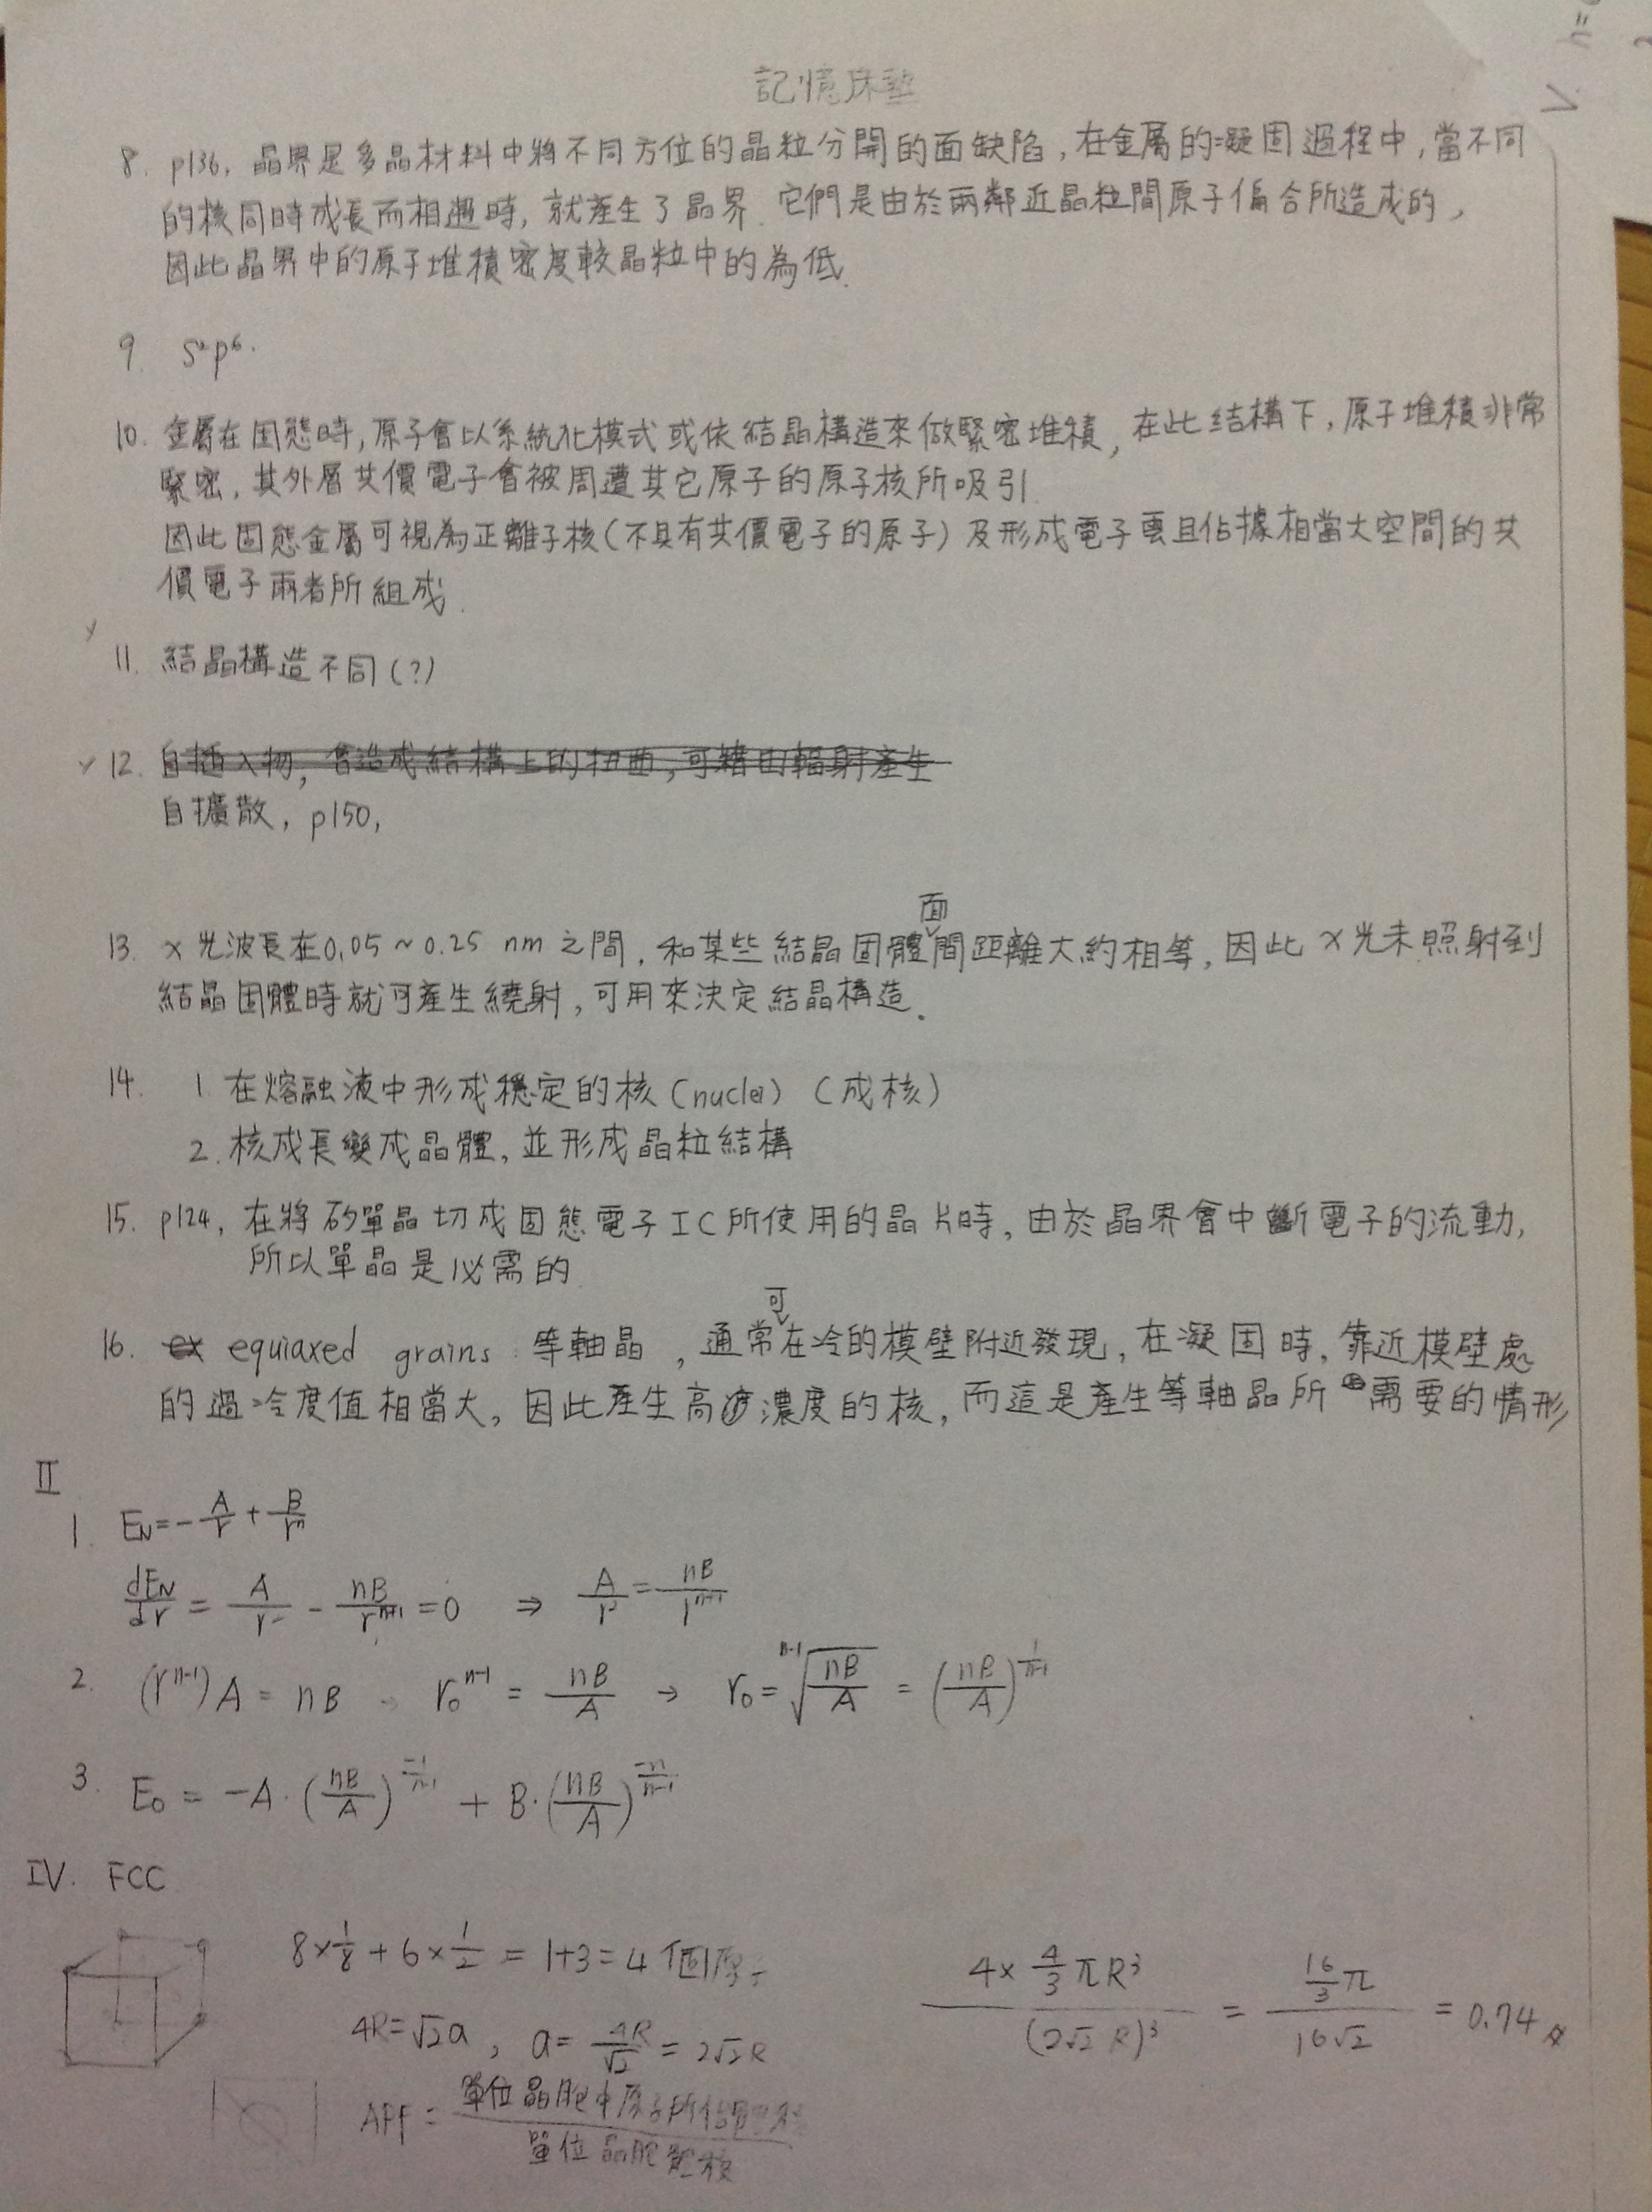 記憶床墊
8. p136, 晶界是多晶材料中將不同方位的晶粒分開的面缺陷,在金屬的凝固過程中,當不同
的核同時成長而相遇時,就產生了晶界.它們是由於兩鄰近晶粒間原子偏合所造成的,
因此晶界中的原子堆積密度較晶粒中的為低.
9. s²p⁶.
10. 金屬在固態時,原子會以系統化模式或依結晶構造來做緊密堆積,在此結構下,原子堆積非常
緊密,其外層共價電子會被周遭其它原子的原子核所吸引.
因此固態金屬可視為正離子核(不具有共價電子的原子)及形成電子雲且佔據相當大空間的共
價電子兩者所組成.
11. 結晶構造不同(?)
12. 自插入物,會造成結構上的扭曲,可藉由輻射產生
自擴散, p150,
13. x光波長在0.05~0.25 nm之間,和某些結晶固體面間距離大約相等,因此x光未照射到
結晶固體時就可產生繞射,可用來決定結晶構造.
14. 1. 在熔融液中形成穩定的核(nuclei)(成核)
2. 核成長變成晶體,並形成晶粒結構
15. p124, 在將矽單晶切成固態電子IC所使用的晶片時,由於晶界會中斷電子的流動,
所以單晶是必需的
16. ex equiaxed grains: 等軸晶,通常可在冷的模壁附近發現,在凝固時,靠近模壁處
的過冷度值相當大,因此產生高濃度的核,而這是產生等軸晶所需要的情形
II
1. E_N = -A/r + B/rⁿ
dE_N/dr = A/r² - nB/rⁿ⁺¹ = 0 ⇒ A/r² = nB/rⁿ⁺¹
2. (rⁿ⁻¹)A = nB → r₀ⁿ⁻¹ = nB/A → r₀ = ⁿ⁻¹√(nB/A) = (nB/A)^(1/(n-1))
3. E₀ = -A·(nB/A)^(-1/(n-1)) + B·(nB/A)^(-n/(n-1))
IV. FCC
8×1/8 + 6×1/2 = 1+3 = 4 個原子
4R=√2a, a = 4R/√2 = 2√2R
APF = 單位晶胞中原子所佔體積/單位晶胞體積
4×4/3πR³/(2√2R)³ = 16/3π/16√2 = 0.74